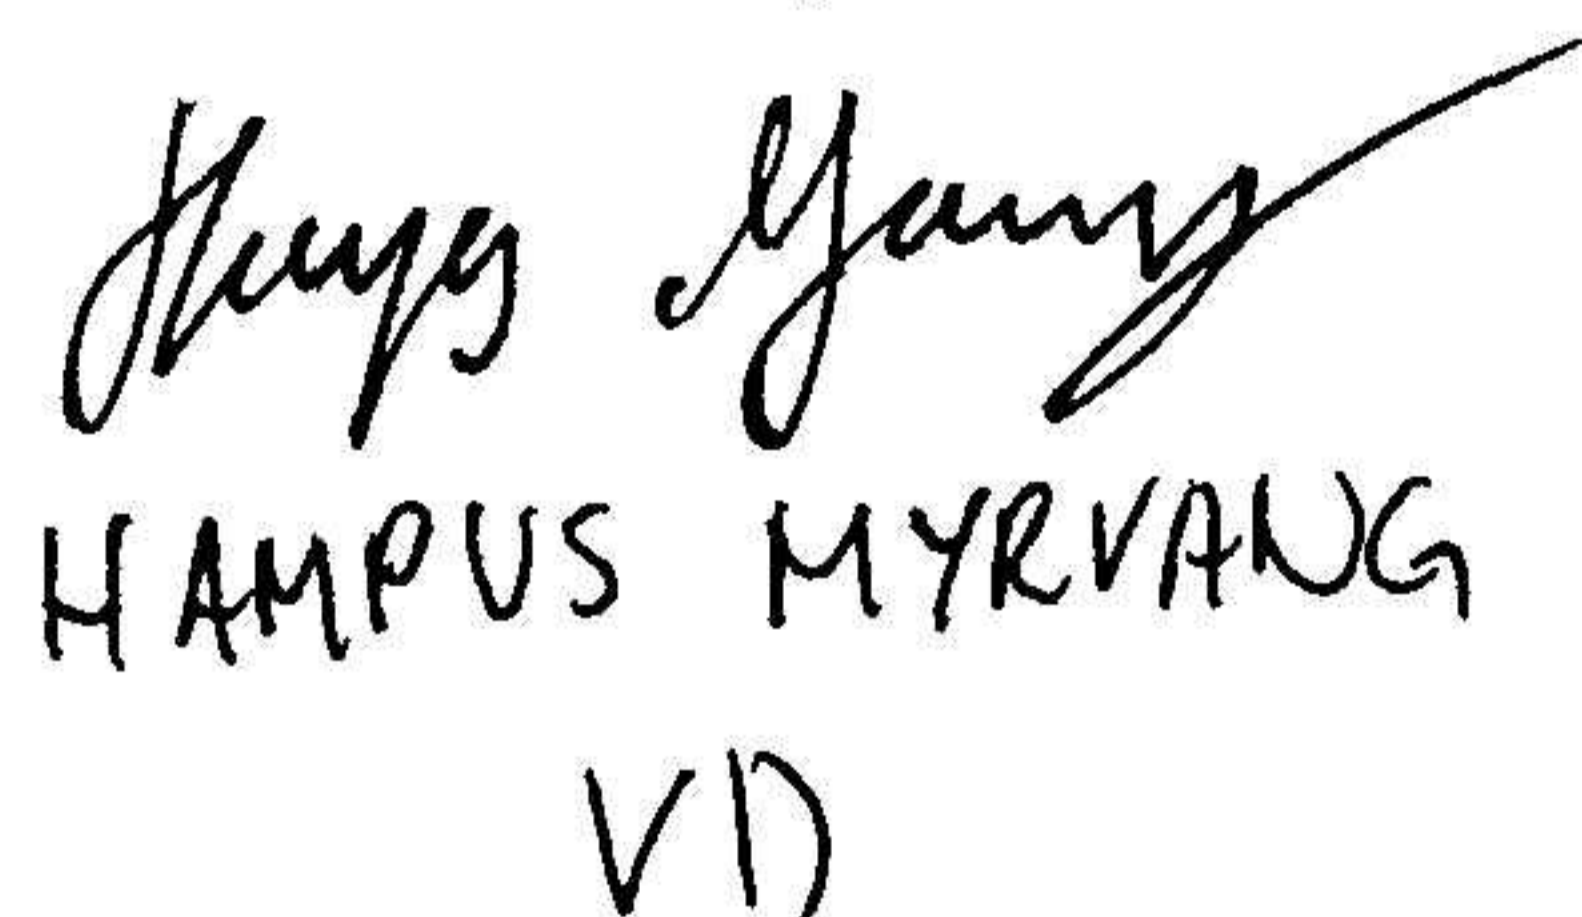 HAMPUS MYRVANG
VD